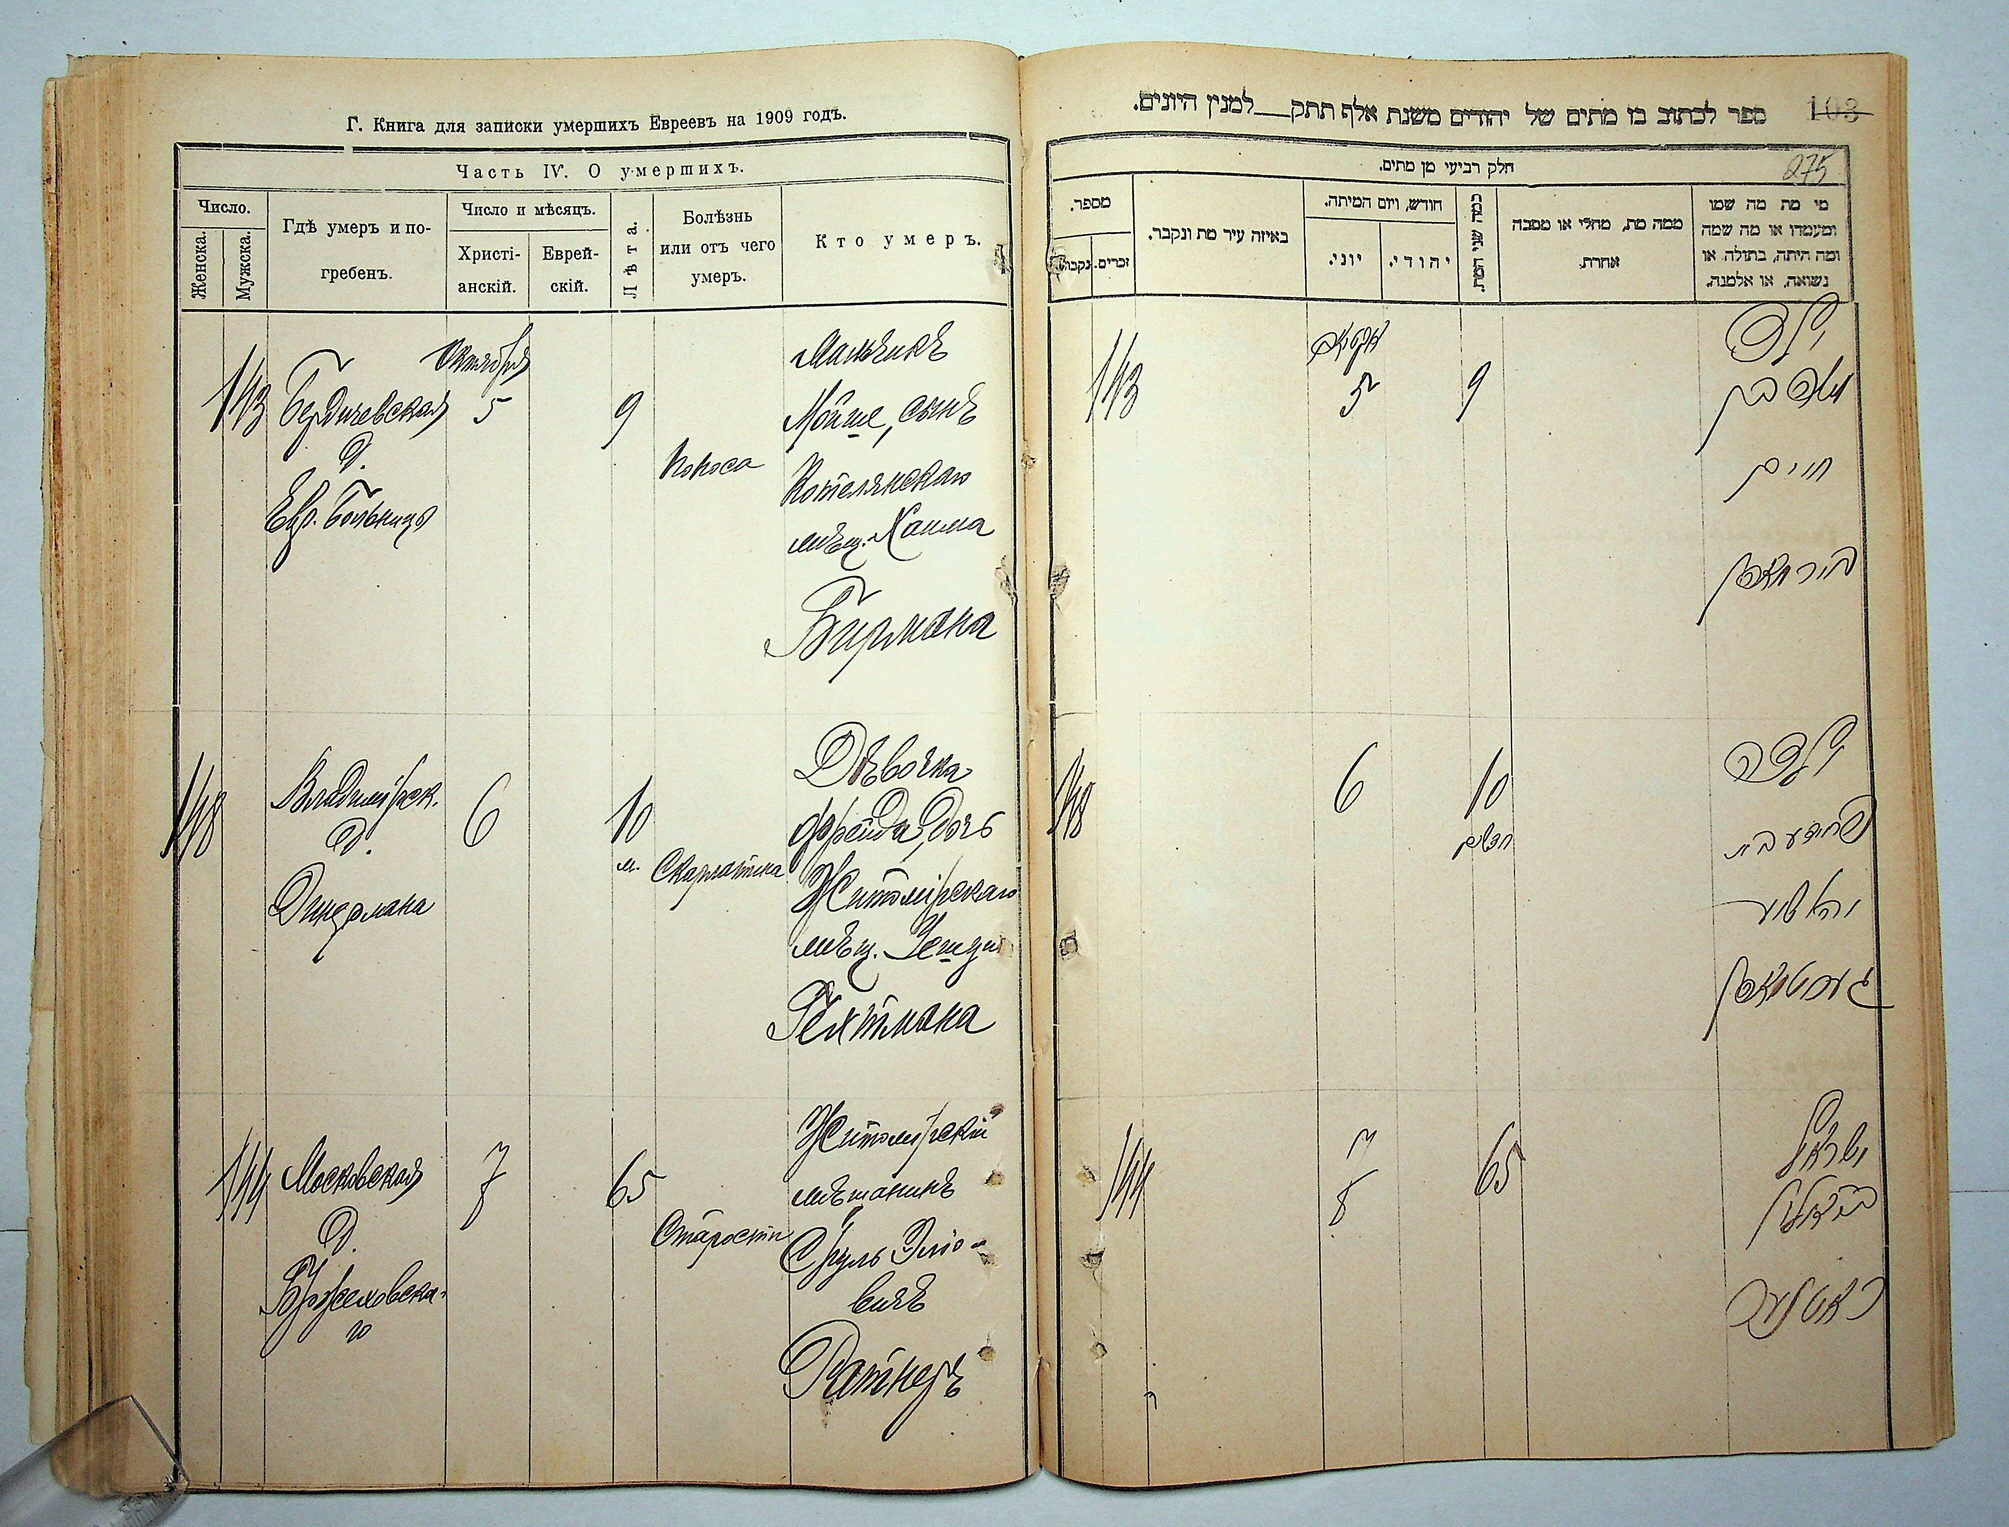 Г. Книга для записки умершихъ Евреевъ на 1909 годъ.
Часть IV. О умершихъ.
Число.
Женска.
Мужска.
Гдѣ умеръ и по-
гребенъ.
Число и мѣсяцъ.
Христі-
анскій.
Еврей-
скій.
Лѣта.
Болѣзнь
или отъ чего
умеръ.
Кто умеръ.
143
Бердичевская
д.
Евр. Больницы
Октября
5
9
Поноса
Мальчикъ
Мойше, сынъ
Котелянскаго
мѣщ. Хаима
Бирмана
148
Владимірск.
д.
6
10
м.
Скарлатина
Дѣвочка
Фрейда, дочь
Житомірскаго
мѣщ.
Гехтмана
144
Московская
д.
го
7
8
65
Старости
Житомірскій
мѣщанинъ
Сруль Эліо-
вичъ
Ратнеръ
ספר לכתוב בו מתים של יהודים משנת אלף תתק__למנין היונים.
103
275
חלק רביעי מן מתים.
מספר.
נקבה
זכרים.
באיזה עיר מת ונקבר.
חודש, ויום המיתה.
יוני.
יהודי.
כמה שני המת.
ממה מת, מחלי או מסבה
אחרת
מי מת מה שמו
ומעמדו או מה שמה
ומה היתה, בתולה או
נשואה, או אלמנה.
143
5
9
ילד
משה בן
חיים
בירמאן
148
6
10
חדשים
ילדה
פריידע בת
געכטמאן
144
7
8
65
ישראל
ראטנער